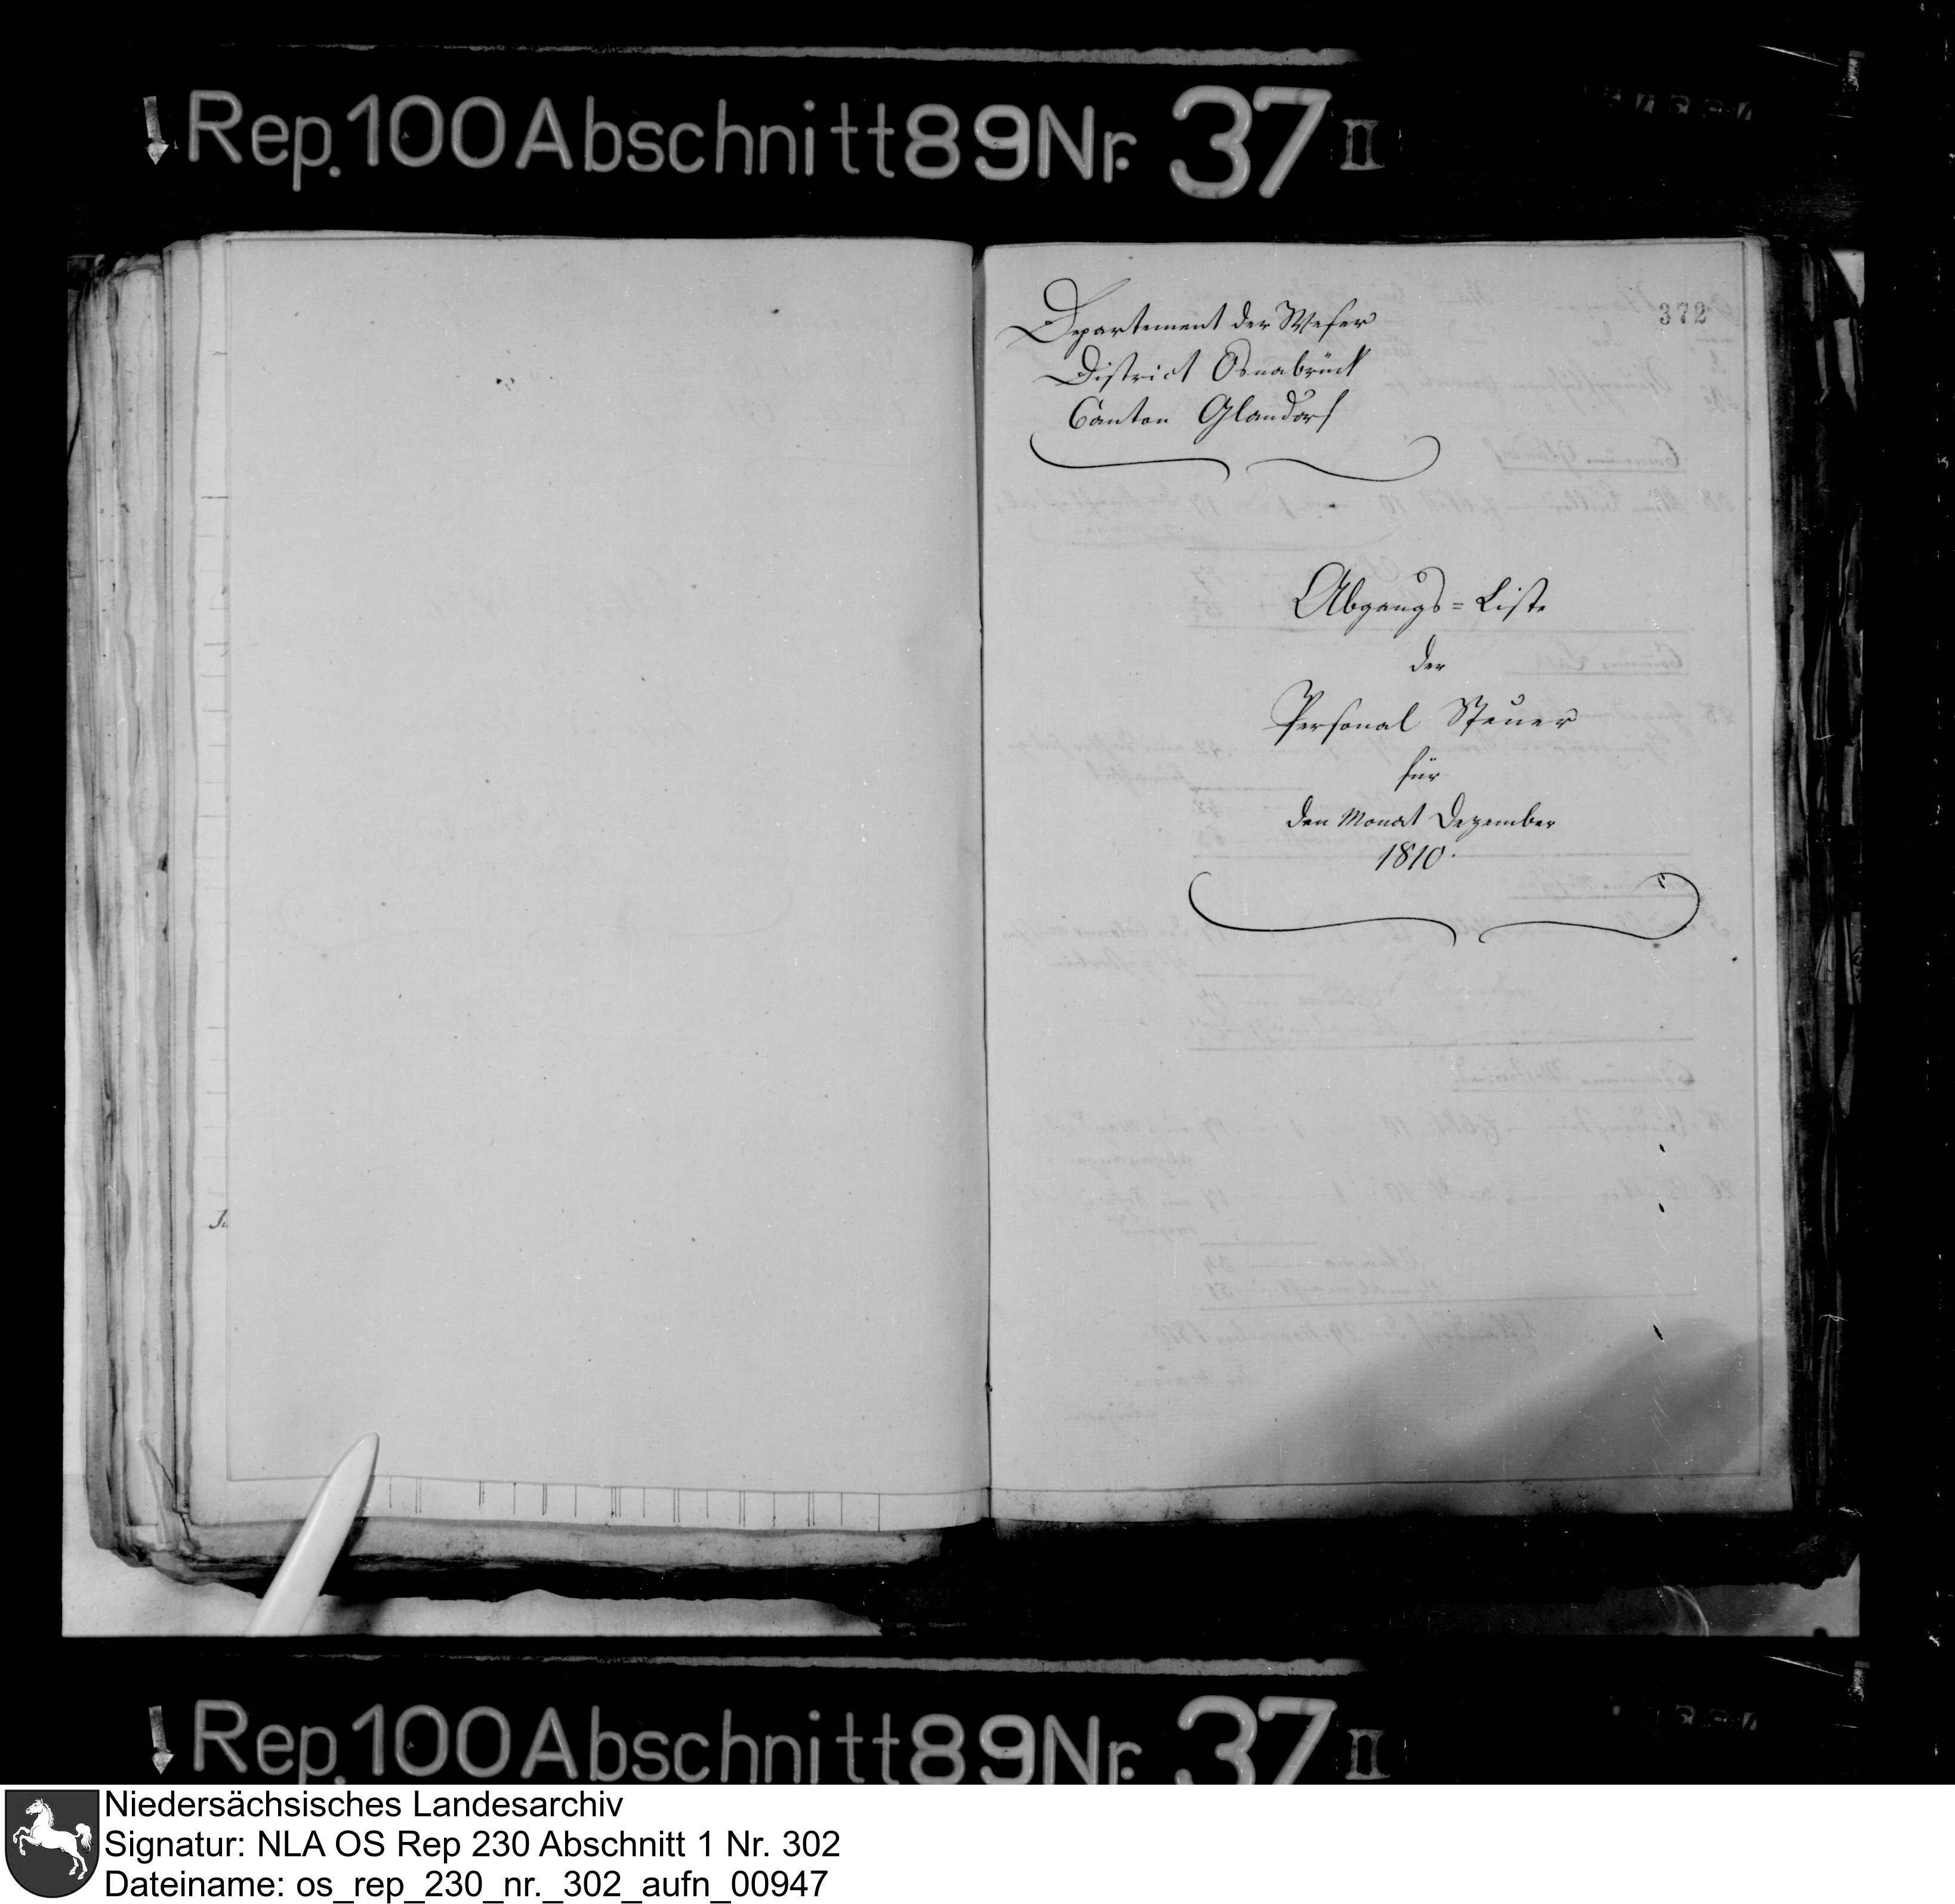 Rep. 100 Abschnitt 89 Nr. 37 II
372
Departement der Weser
District Osnabrück
Canton Glandorf
Abgangs=Liste
der
Personal Steuer
für
den Monat Dezember
1810.
Rep. 100 Abschnitt 89 Nr. 37 II
Niedersächsisches Landesarchiv
Signatur: NLA OS Rep 230 Abschnitt 1 Nr. 302
Dateiname: os_rep_230_nr._302_aufn_00947